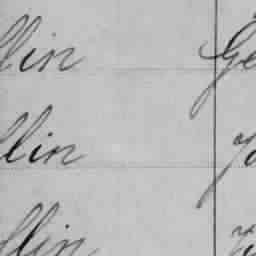 llin Ge
llin
llin